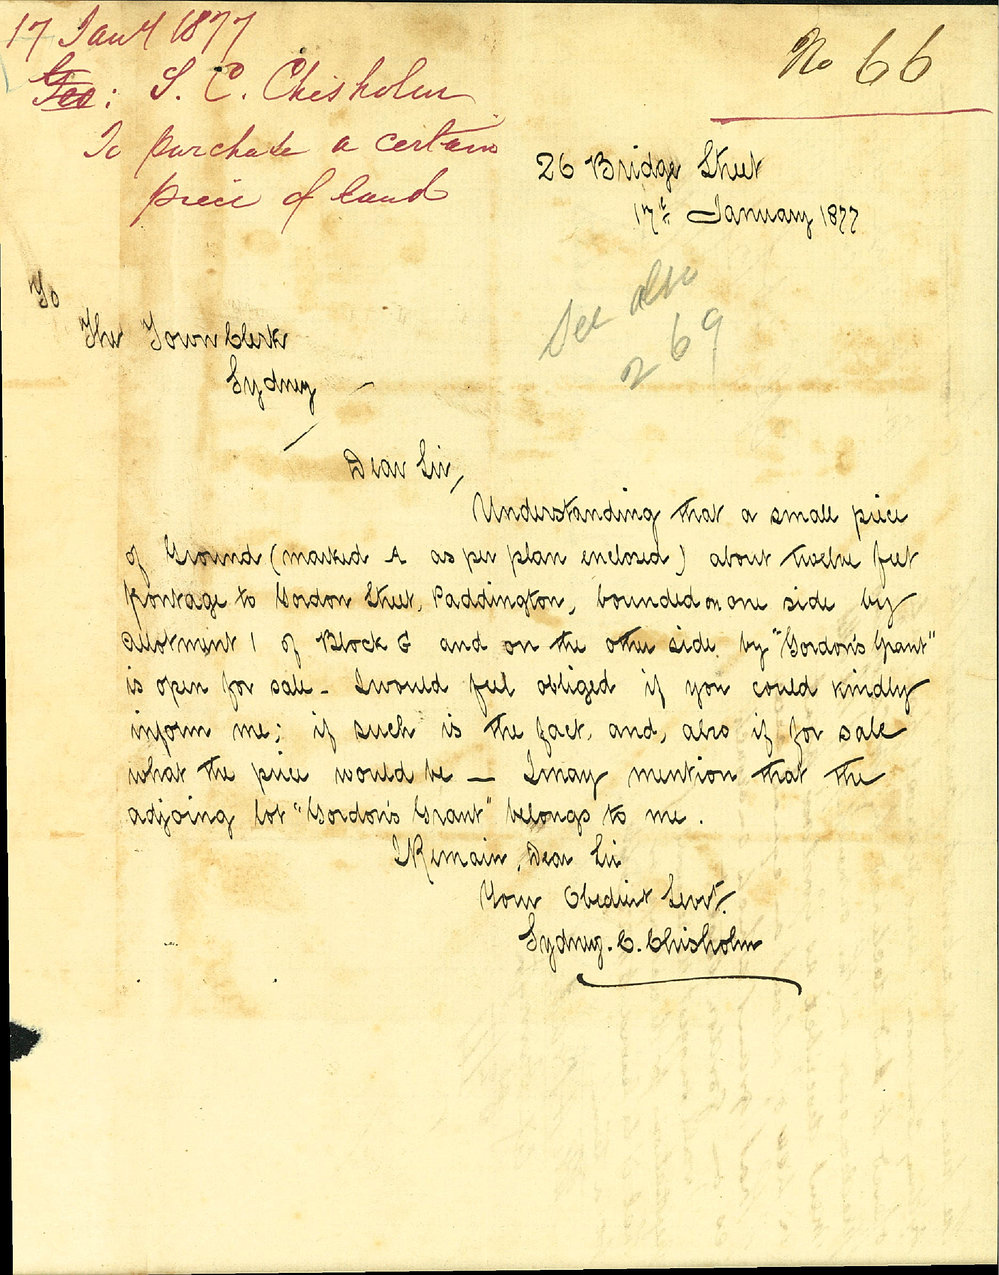 17 Jany 1877
Geo: S. C. Chisholm
To purchase a certain
piece of land
No 66
26 Bridge Street
17th January 1877
See also
269
To
The Town Clerk
Sydney
Dear Sir,
Understanding that a small piece
of Ground (marked A as per plan enclosed) about twelve feet
frontage to Gordon Street, Paddington, bounded on one side by
allotment 1 of Block G and on the other side by "Gordon's Grant"
is open for sale - I would feel obliged if you could kindly
inform me; if such is the fact, and, also if for sale
what the price would be — I may mention that the
adjoing lot "Gordon's Grant" belongs to me.
I Remain, Dear Sir
Your Obedient Servt.
Sydney. C. Chisholm